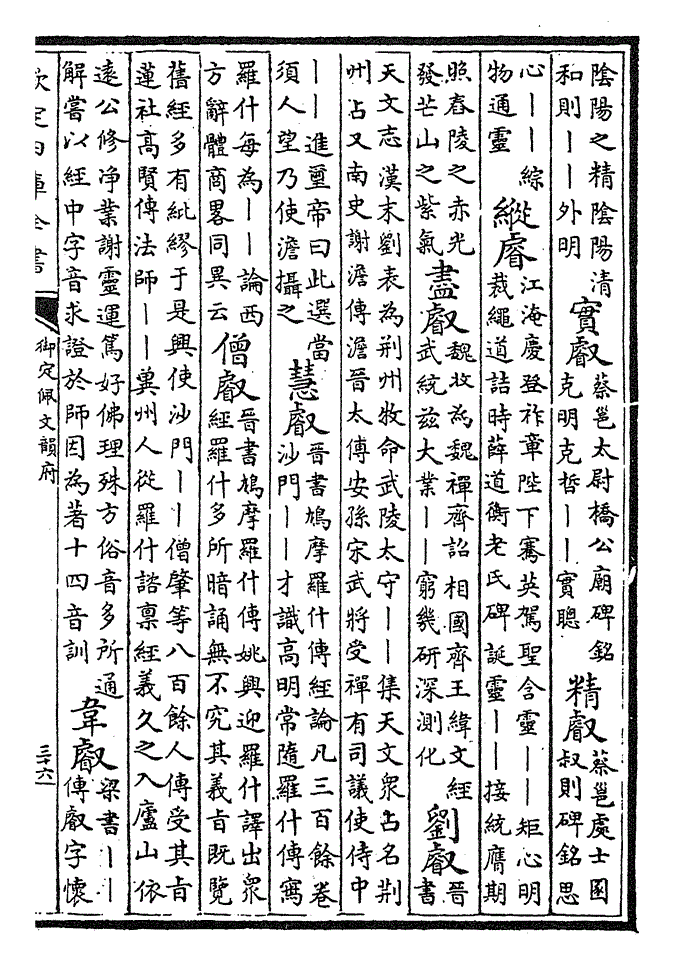 陰陽之精陰陽清
和則丨丨外明
實叡
蔡邕太尉橋公廟碑銘
克明克哲丨丨實聰
精叡
蔡邕處士圂
叔則碑銘思
心丨丨綜
物通靈
縱睿
江淹慶登祚章陛下騫英駕聖含靈丨丨矩心明
裁繩道詰時薛道衡老氏碑誕靈丨丨接統膺期
照舂陵之赤光
發芒山之紫氣
盡叡
魏收為魏禪齊詔相國齊王緯文經
武統茲大業丨丨窮幾研深測化
劉叡
晉
書
天文志漢末劉表為荆州牧命武陵太守丨丨集天文衆占名荆
州占又南史謝澹傳澹晉太傅安孫宋武將受禪有司議使侍中
丨丨進璽帝曰此選當
須人望乃使澹攝之
慧叡
晉書鳩摩羅什傳經論凡三百餘卷
沙門丨丨才識高明常隨羅什傳寫
羅什每為丨丨論西
方辭體商畧同異云
僧叡
晉書鳩摩羅什傳姚興迎羅什譯出衆
經羅什多所暗誦無不究其義㫖既覽
舊經多有紕繆于是興使沙門丨丨僧肇等八百餘人傳受其㫖
蓮社高賢傳法師丨丨冀州人從羅什諮禀經義久之入廬山依
遠公修净業謝靈運篤好佛理殊方俗音多所通
解嘗以經中字音求證於師因為著十四音訓
韋叡
梁書丨丨
傳叡字懷
欽定四庫全書
御定佩文韻府
三十六